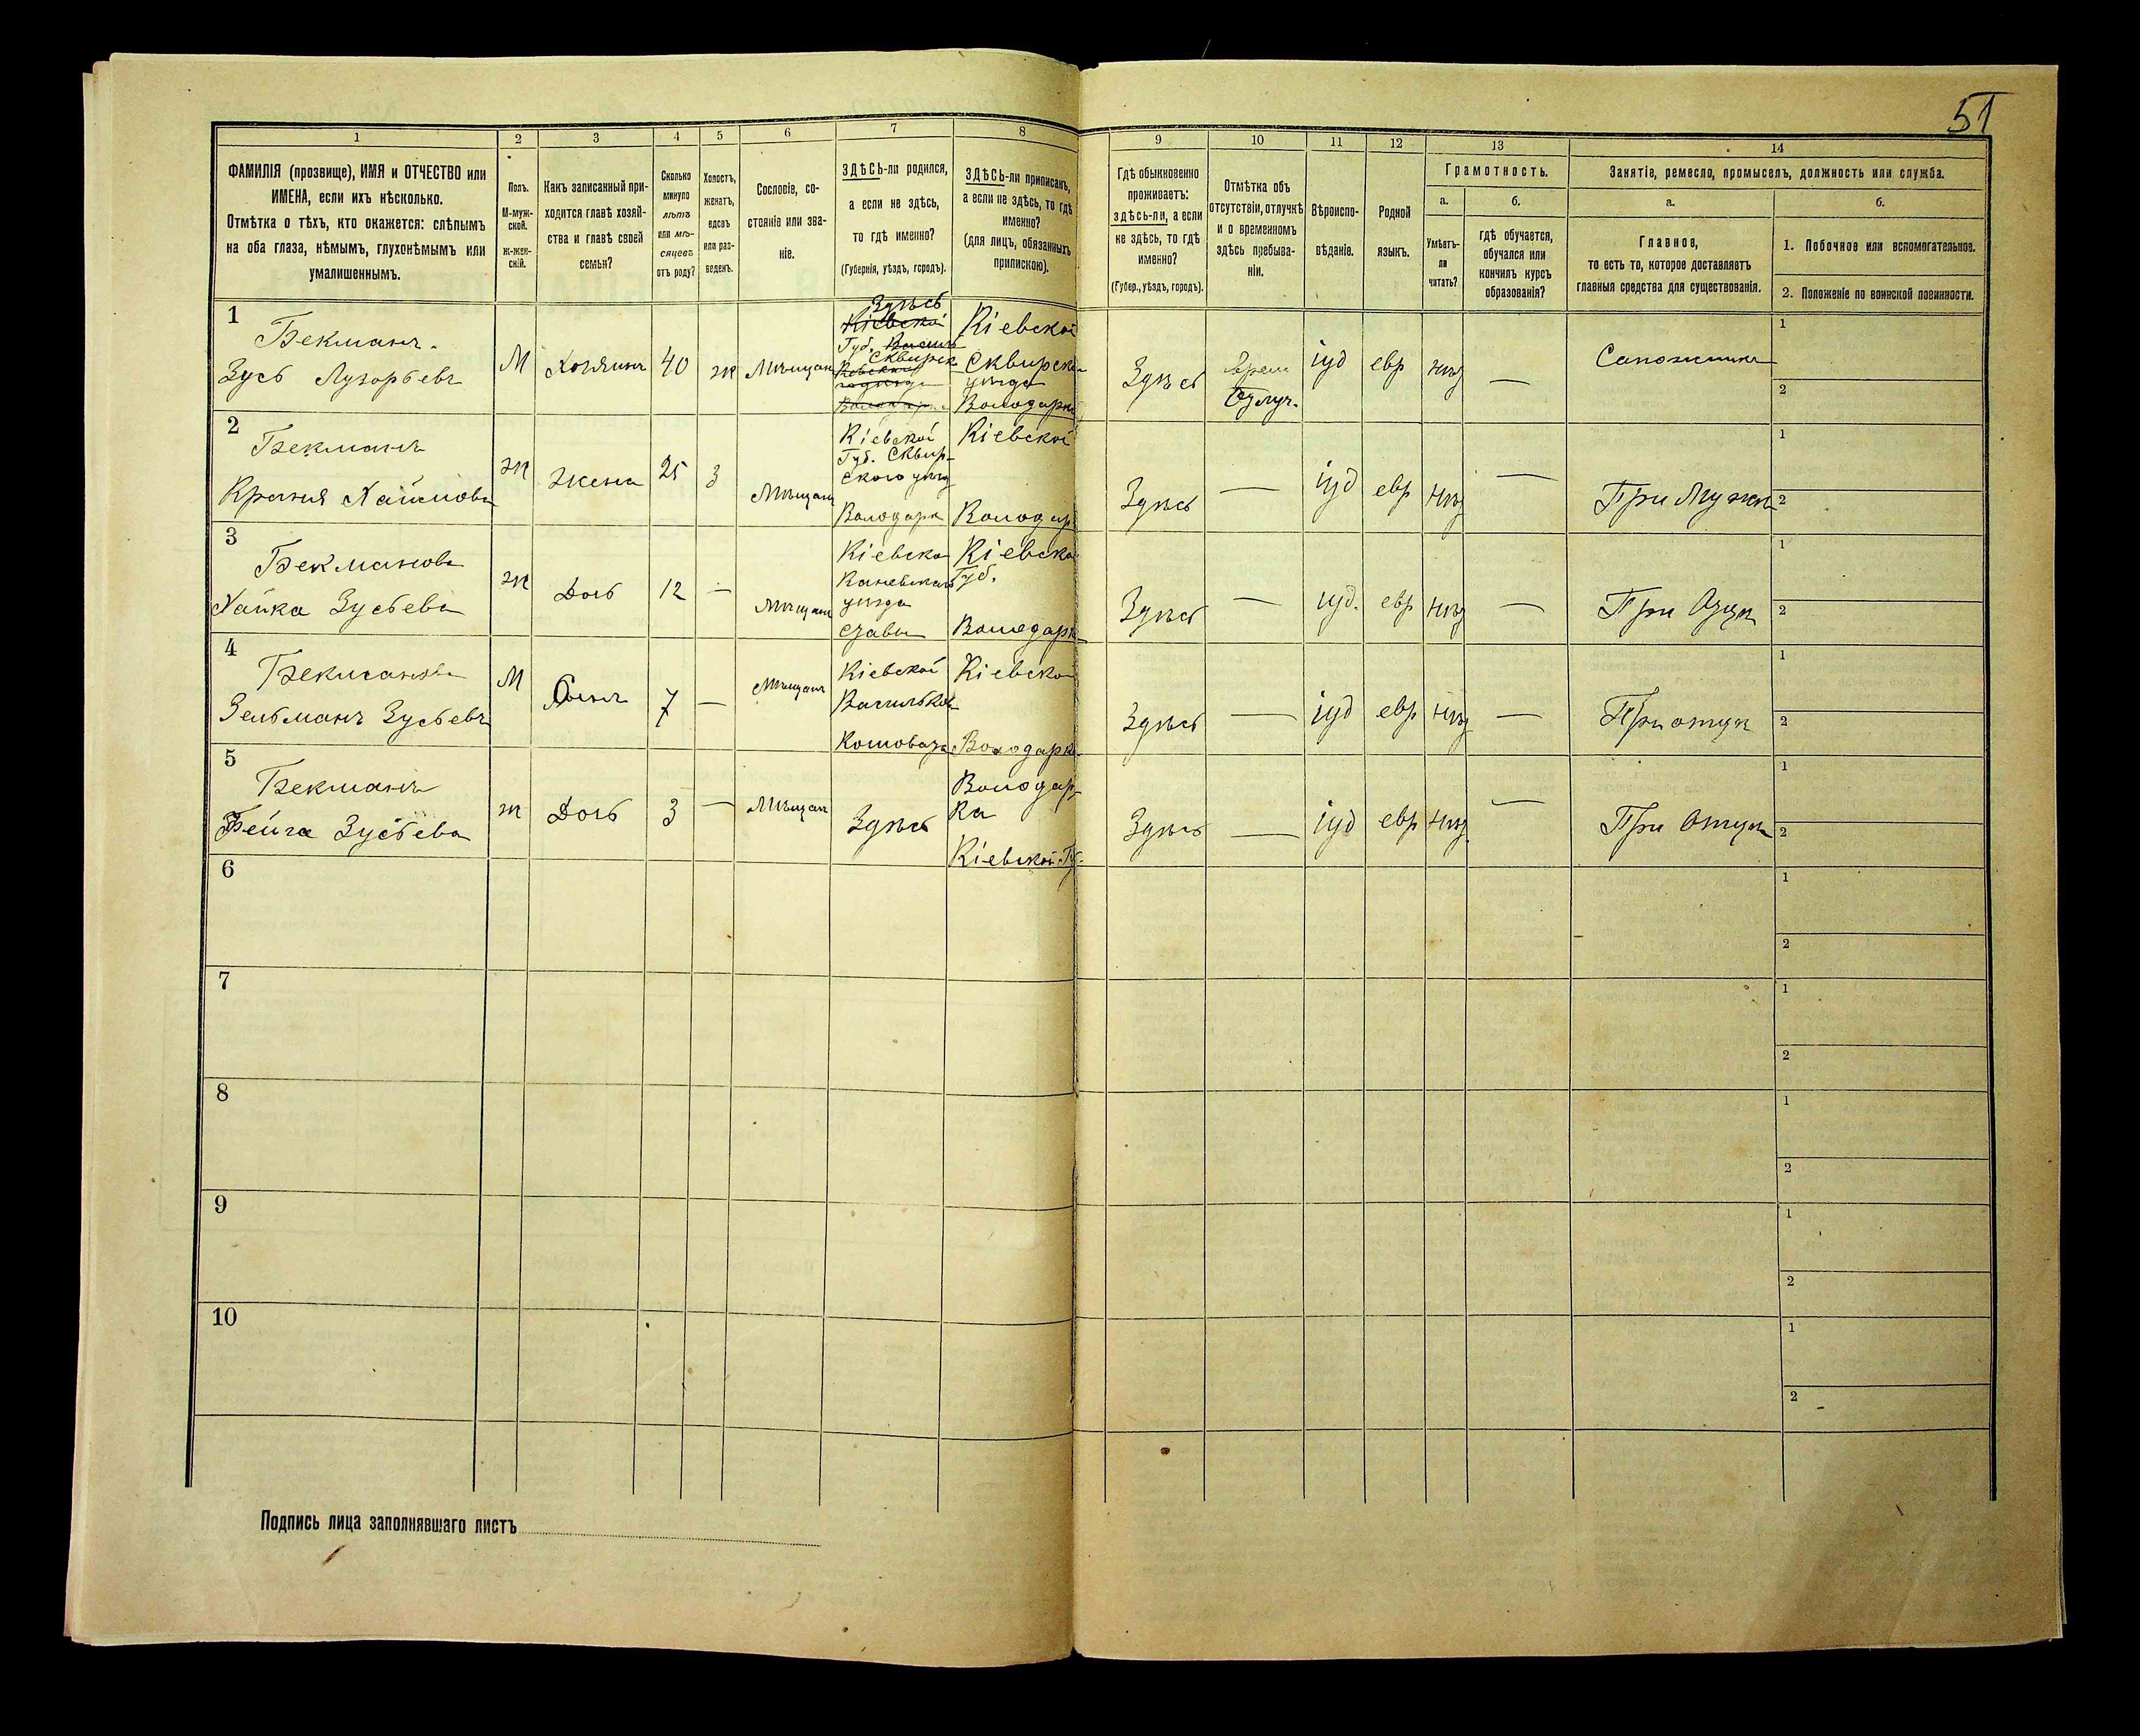 51
1
2
3
4
5
6
7
8
9
10
11
12
13
14
ФАМИЛІЯ (прозвище), ИМЯ и ОТЧЕСТВО или
ИМЕНА, если ихъ нѣсколько.
Отмѣтка о тѣхъ, кто окажется: слѣпымъ
на оба глаза, нѣмымъ, глухонѣмымъ или
умалишеннымъ.
Полъ.
М-муж-
ской.
Ж-жен-
скій.
Какъ записанный при-
ходится главѣ хозяй-
ства и главѣ своей
семьи?
Сколько
минуло
лѣтъ
или мѣ-
сяцевъ
отъ роду?
Холостъ,
женатъ,
вдовъ
или раз-
веденъ.
Сословіе, со-
стояніе или зва-
ніе.
ЗДѢСЬ-ли родился,
а если не здѣсь,
то гдѣ именно?
(Губернія, уѣздъ, городъ).
ЗДѢСЬ-ли приписанъ,
а если не здѣсь, то гдѣ
именно?
(для лицъ, обязанныхъ
припискою).
Гдѣ обыкновенно
проживаетъ:
здѣсь-ли, а если
не здѣсь, то гдѣ
именно?
(Губер., уѣздъ, городъ).
Отмѣтка объ
отсутствіи, отлучкѣ
и о временномъ
здѣсь пребыва-
ніи.
Вѣроиспо-
вѣданіе.
Родной
языкъ.
Грамотность.
а.
Умѣетъ-
ли
читать?
б.
гдѣ обучается,
обучался или
кончилъ курсъ
образованія?
Занятіе, ремесло, промыселъ, должность или служба.
а.
Главное,
то есть то, которое доставляетъ
главныя средства для существованія.
б.
1. Побочное или вспомогательное.
2. Положеніе по воинской повинности.
1
Бекманъ.
Зусь Лузорьевъ
М
Хозяинъ
40
ж
Мѣщан
Здѣсь
Кіевской
Губ.
Сквирск
Кіевской
Сквирска
уѣзда
Володарка
Здѣсь
врем
Отлуч.
іуд
евр
нѣт
—
Сапожник
1
2
2
Бекманъ
Крейня Хаимова
ж
жена
25
З
Мѣщан
Кіевской
Губ. Сквир-
ского уѣзд
Володарк
Кіевской
Володар
Здѣсь
—
іуд
евр
нѣт
—
При Мужѣ
1
2
3
Бекманова
Хайка Зусьева
ж
Дочь
12
—
Мѣщан
Кіевско
Каневскаго
уѣзда
Кіевско
Губ.
Володарк
Здѣсь
—
іуд.
евр
нѣт
—
При Отцѣ
1
2
4
Бекманова
Зельманъ Зусьевъ
М
Сынъ
7
—
Мѣщанъ
Кіевской
Васильков
Кіевско
Володарка
Здѣсь
—
іуд
евр
нѣт
—
При отцѣ
1
2
5
Бекманъ
Бейга Зусьева
ж
Дочь
3
—
Мѣщан
Здѣсь
Володар
ка
Кіевской Гу.
Здѣсь
—
іуд
евр
нѣт
—
При Отцѣ
1
2
6
1
2
7
1
2
8
1
2
9
1
2
10
1
2
Подпись лица заполнявшаго листъ